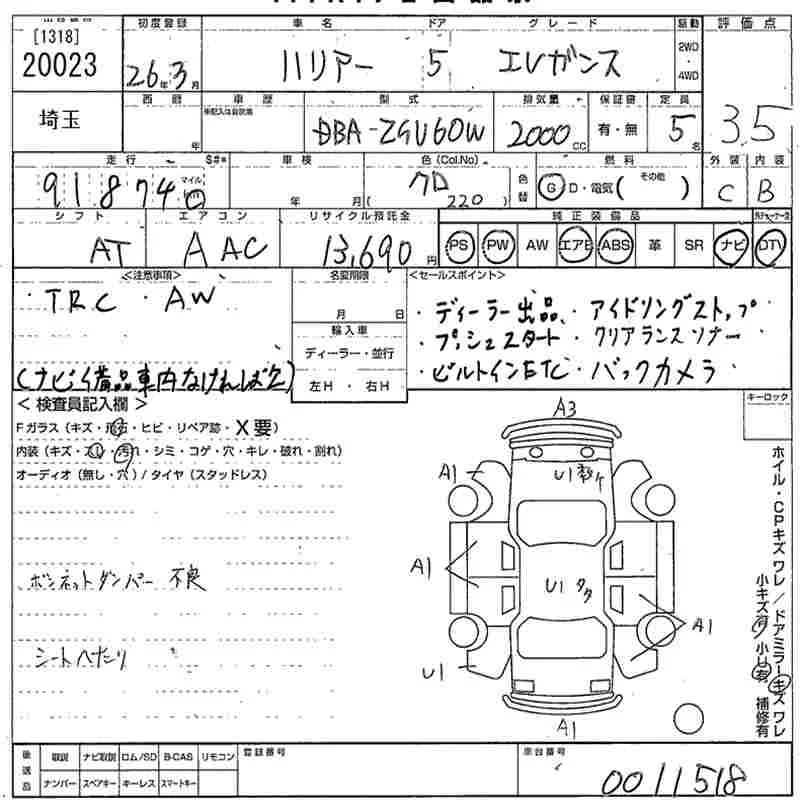 [1318]
20023
初度登録
26年3月
車名
ハリアー
ドア
5
グレード
エレガンス
駆動
2WD
・
4WD
評価点
3.5
埼玉
西暦
年
車歴
車記入は自家用
型式
DBA-ZSU60W
排気量
2000CC
保証書
有・無
定員
5名
走行
S#*
91,874
マイル
km
車検
年 月
色(Col.No)
クロ
(220)
色替
燃料
G D・電気( その他 )
外装
C
内装
B
シフト
AT
エアコン
AAC
リサイクル預託金
13,690円
純正装備品
PS PW AW エアB ABS 革 SR ナビ DTV
<注意事項>
・TRC ・AW
(ナビ備品車内なければ欠)
名変期限
月 日
輸入車
ディーラー・並行
左H ・ 右H
<セールスポイント>
・ディーラー出品・アイドリングストップ
・プッシュスタート・クリアランスソナー
・ビルトインETC・バックカメラ
<検査員記入欄>
Fガラス(キズ・飛石・ヒビ・リペア跡・X要)
内装(キズ・スレ・汚れ・シミ・コゲ・穴・キレ・破れ・割れ)
オーディオ(無し・穴)/タイヤ(スタッドレス)
ボンネットダンパー不良
シートヘたり
キーロック
A3
A1
U1
A1
U1
A1
U1
A1
ホイル・CPキズワレ/ドアミラーキズワレ
小キズ有 小U有 補修有
後送品
取説 ナビ取説 ロム/SD B-CAS リモコン
ナンバー スペアキー キーレス スマートキー
登録番号
車台番号
0011518